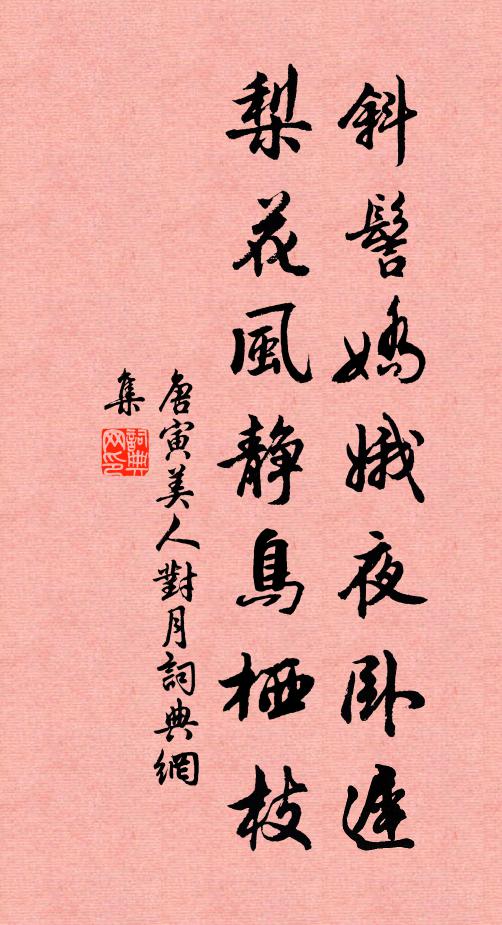 斜髻嬌娥夜卧遲
梨花風静鳥栖枝
唐寅美人對月詞典網
集
詞典
网印